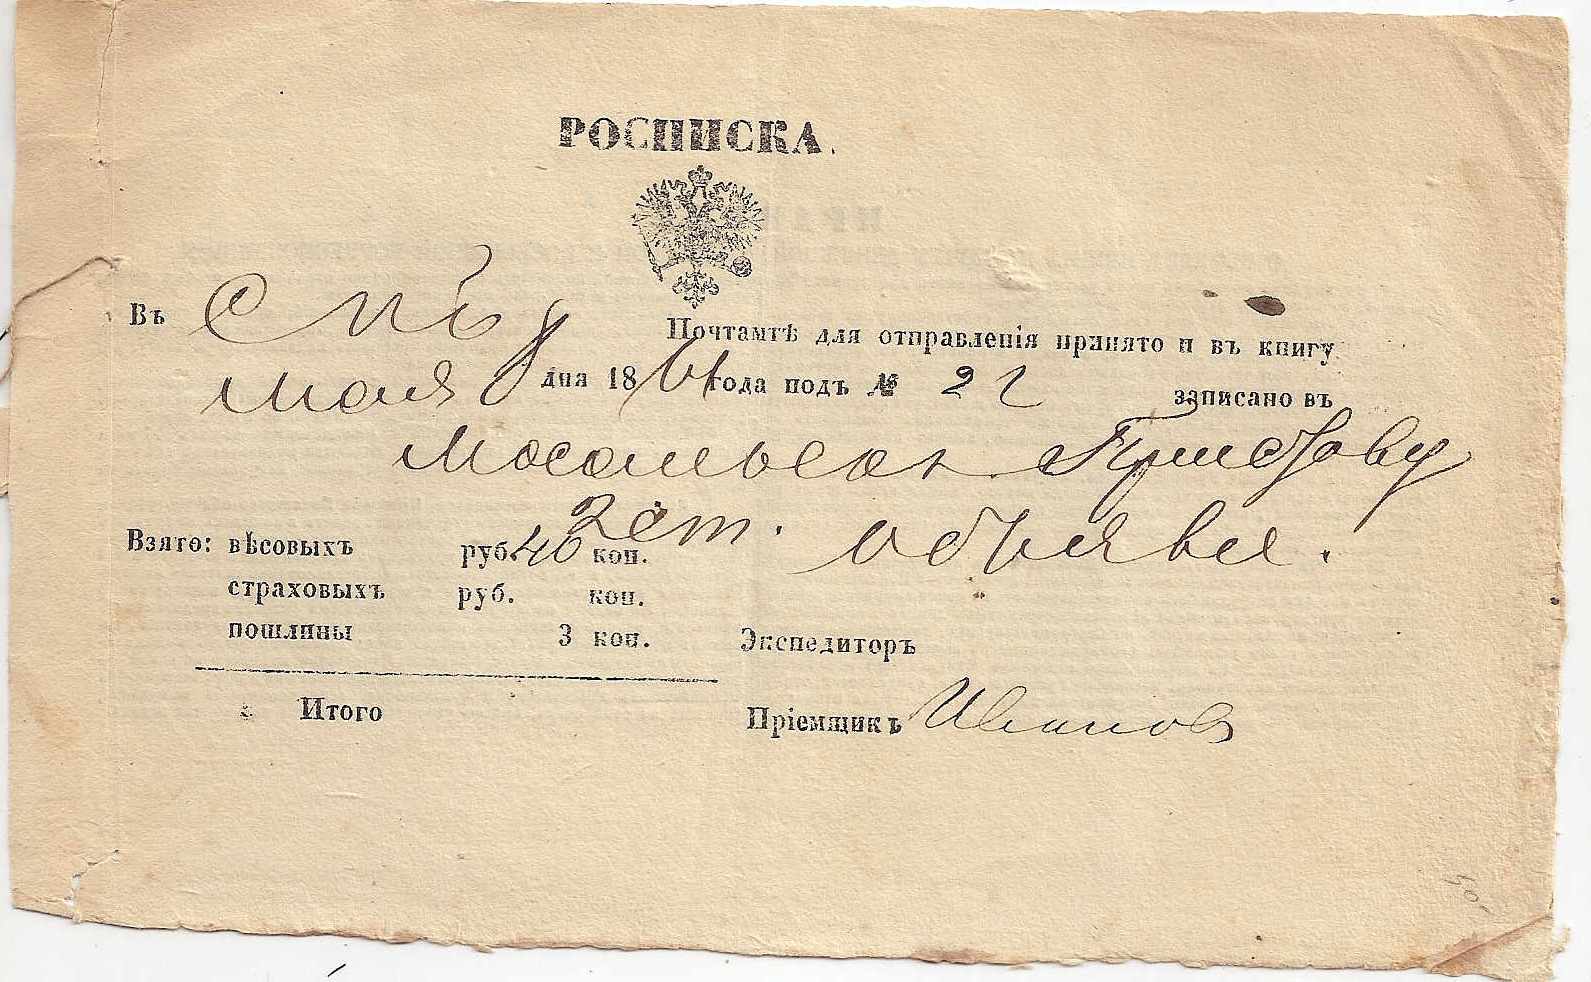 РОСПИСКА.
Въ СПб Почтамтѣ для отправленія принято и въ книгу
мая 8 дня 1861 года подъ № 22 записано въ
Мосальскъ
Взято: вѣсовыхъ руб. 40 коп.
страховыхъ руб. коп.
пошлины 3 коп. Экспедиторъ
Итого Пріемщикъ Иванов
50-